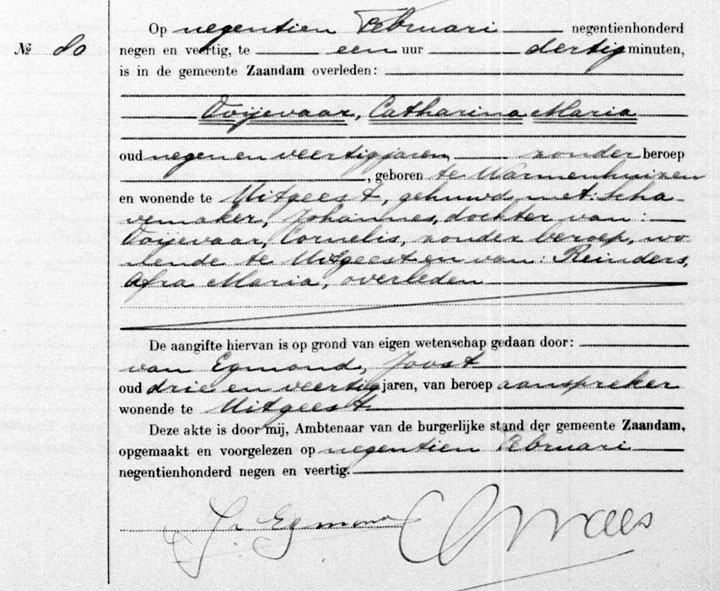 Op negentien Februari negentienhonderd
№ 80 negen en veertig, te een uur dertig minuten,
is in de gemeente Zaandam overleden:
Ooijevaar, Catharina Maria
oud negen en veertig jaren zonder beroep
, geboren te Warmenhuizen
en wonende te Uitgeest, gehuwd met: Scha-
vemaker, Johannes, dochter van:
Ooijevaar, Cornelis, zonder beroep, wo-
nende te Uitgeest en van: Reinders,
Afra Maria, overleden
De aangifte hiervan is op grond van eigen wetenschap gedaan door:
van Egmond, Joost
oud drie en veertig jaren, van beroep aanspreker
wonende te Uitgeest
Deze akte is door mij, Ambtenaar van de burgerlijke stand der gemeente Zaandam,
opgemaakt en voorgelezen op negentien Februari
negentienhonderd negen en veertig.
Egmond